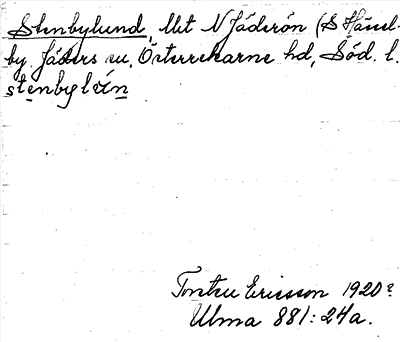 Stenbylund, Ut N Jäderön (S Hässel-
by. Jäders sn. Österrekarne hd, Söd. l.
stenbylún
Torsten Ericsson 1920?
Ulma 881: 24a.